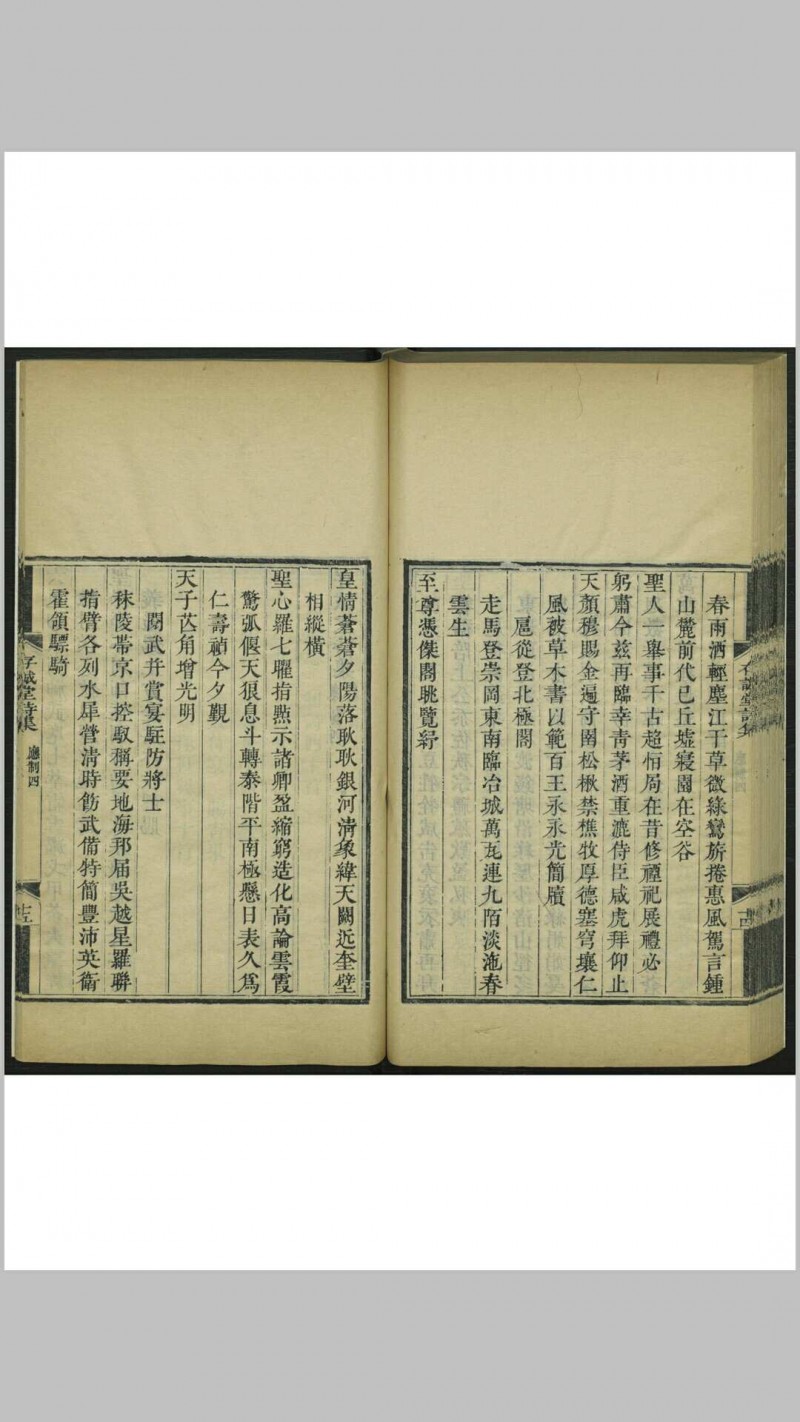 春雨洒輕塵江干草微綠鸞旂捲惠風駕言鍾
山麓前代已丘墟寢園在空谷
聖人一舉事千古超恒局在昔修禋祀展禮必
躬肅今兹再臨幸靑茅酒重漉侍臣咸虎拜仰止
天顏穆賜金遍守圉松楸禁樵牧厚德塞穹壤仁
風被草木書以範百王永永光簡牘
扈從登北極閣
走馬登崇岡東南臨冶城萬瓦連九陌淡沲春
雲生
至尊憑傑閣眺覽紓
皇情蒼蒼夕陽落耿耿銀河淸象緯天闕近奎壁
相縱橫
聖心羅七曜指㸃示諸卿盈縮窮造化高論雲霞
驚弧偃天狼息斗轉泰階平南極懸日表久爲
仁壽禎今夕覲
天子芒角增光明
閱武幷賞宴駐防將士
秣陵帶京口控馭稱要地海邦届吳越星羅聯
指臂各列水犀營淸時飭武備特簡豐沛英衛
霍領驃騎
應制四